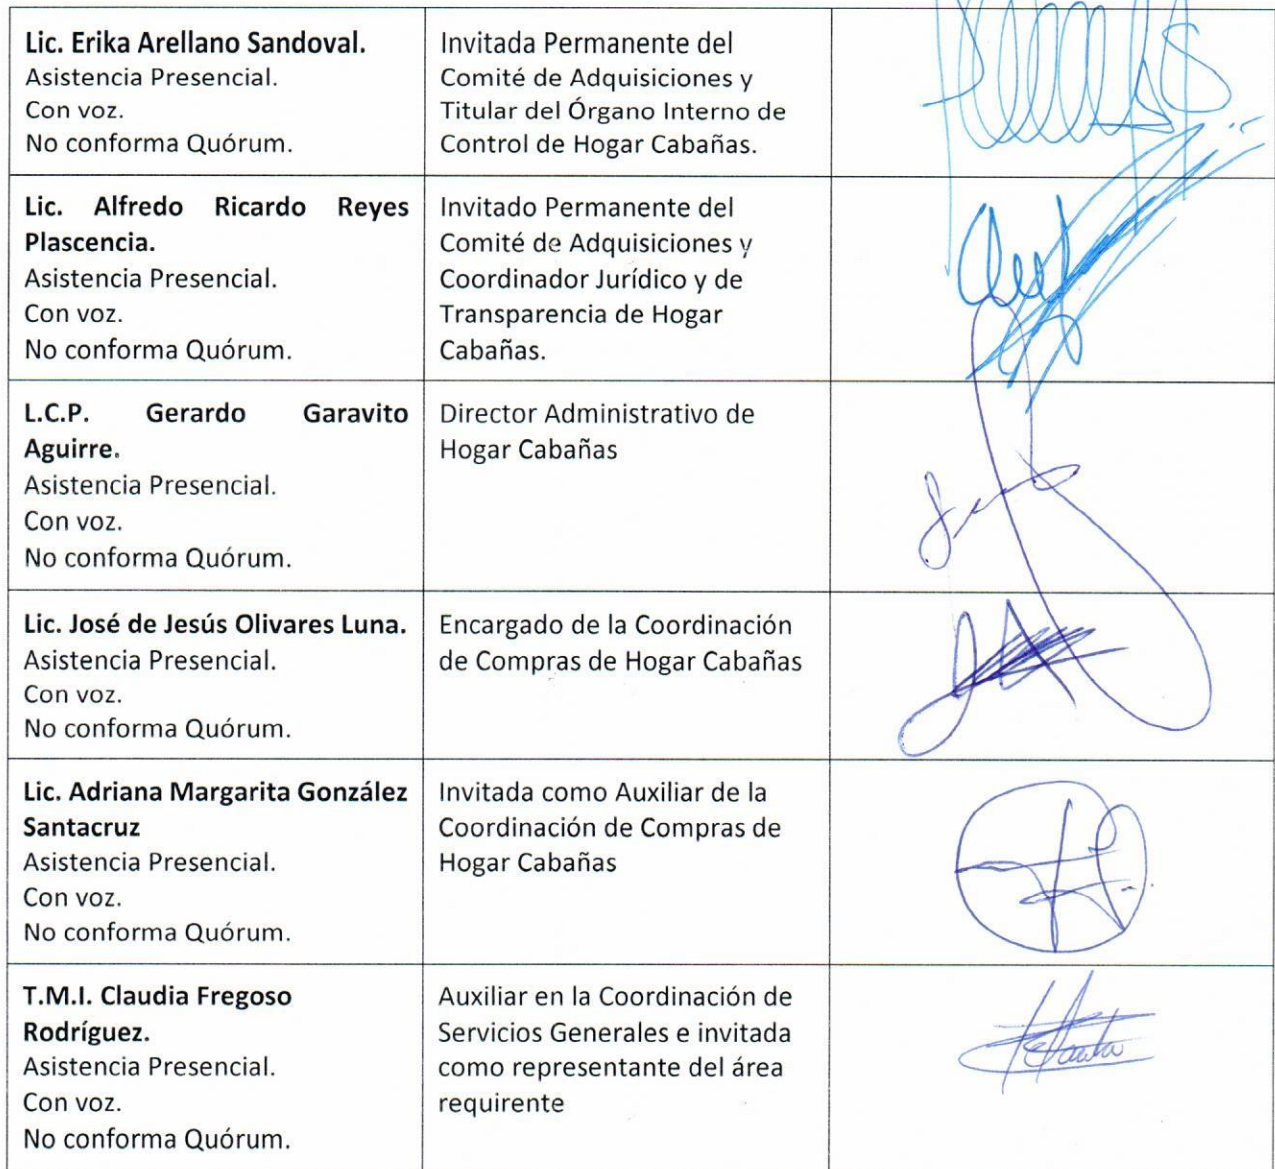 Lic. Erika Arellano Sandoval.
Asistencia Presencial.
Con voz.
No conforma Quórum.
Invitada Permanente del
Comité de Adquisiciones y
Titular del Órgano Interno de
Control de Hogar Cabañas.
Lic. Alfredo Ricardo Reyes
Plascencia.
Asistencia Presencial.
Con voz.
No conforma Quórum.
Invitado Permanente del
Comité de Adquisiciones y
Coordinador Jurídico y de
Transparencia de Hogar
Cabañas.
L.C.P. Gerardo Garavito
Aguirre.
Asistencia Presencial.
Con voz.
No conforma Quórum.
Director Administrativo de
Hogar Cabañas
Lic. José de Jesús Olivares Luna.
Asistencia Presencial.
Con voz.
No conforma Quórum.
Encargado de la Coordinación
de Compras de Hogar Cabañas
Lic. Adriana Margarita González
Santacruz
Asistencia Presencial.
Con voz.
No conforma Quórum.
Invitada como Auxiliar de la
Coordinación de Compras de
Hogar Cabañas
T.M.I. Claudia Fregoso
Rodríguez.
Asistencia Presencial.
Con voz.
No conforma Quórum.
Auxiliar en la Coordinación de
Servicios Generales e invitada
como representante del área
requirente